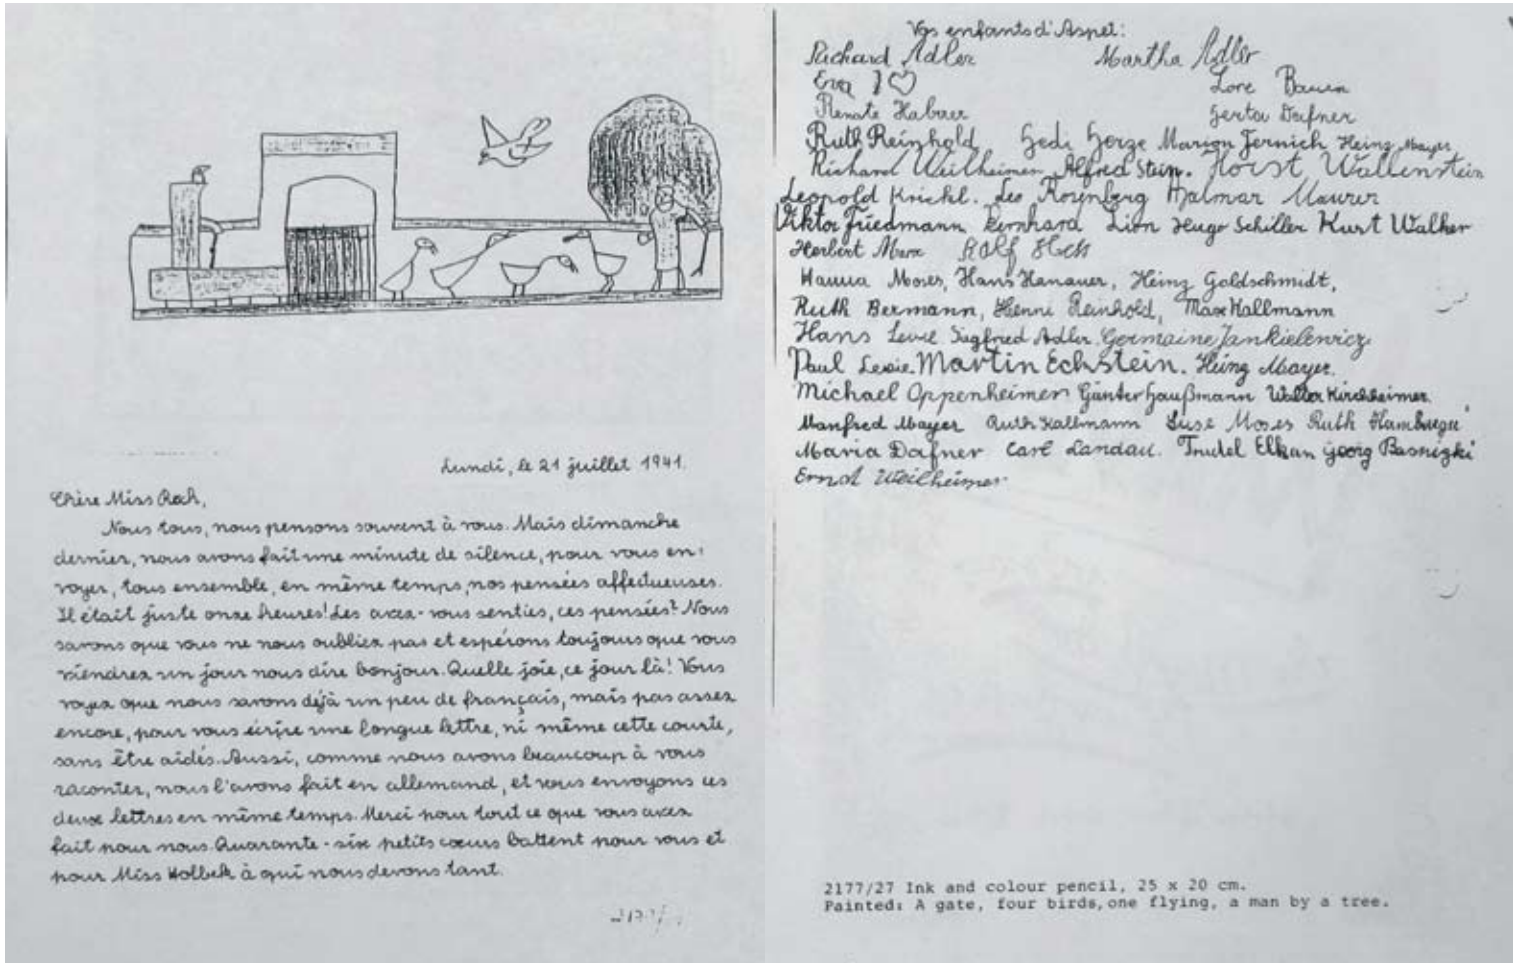 Lundi, le 21 juillet 1941.
Chère Miss Roch,
Nous tous, nous pensons souvent à vous. Mais dimanche
dernier, nous avons fait une minute de silence, pour vous en-
voyer, tous ensemble, en même temps, nos pensées affectueuses.
Il était juste onze heures! Les avez-vous senties, ces pensées? Nous
savons que vous ne nous oubliez pas et espérons toujours que vous
viendrez un jour nous dire bonjour. Quelle joie, ce jour là! Vous
voyez que nous savons déjà un peu de français, mais pas assez
encore, pour vous écrire une longue lettre, ni même cette courte,
sans être aidés. Aussi, comme nous avons beaucoup à vous
raconter, nous l'avons fait en allemand, et vous envoyons ces
deux lettres en même temps. Merci pour tout ce que vous avez
fait pour nous. Quarante-six petits cœurs battent pour vous et
pour Miss Holbek à qui nous devons tant.
Vos enfants d'Aspet:
Richard Adler Martha Adler
Eva Lore
Renate Gerta Dafner
Ruth Reinhold Hedi Marion Jernich Heinz Mayer
Richard Weilheimer Alfred Stein. Horst Wallenstein
Leopold Krickl. Leo Rosenberg Halmar Maurer
Viktor Friedmann Bernhard Lion Hugo Schiller Kurt Walker
Herbert Marx Rolf Hess
Hanna Moses, Hans Hanauer, Heinz Goldschmidt,
Ruth Bermann, Henni Reinhold, Max Kallmann
Hans Levie Siegfried Adler. Germaine Jankielewicz
Paul Levie. Martin Eckstein. Heinz Mayer.
Michael Oppenheimer Günter Haußmann Walter Kirchheimer.
Manfred Mayer Ruth Kallmann Suse Moses Ruth Hamburger
Maria Dafner Carl Landau. Trudel Elkan Georg Basnizki
Ernst Weilheimer.
2177/27 Ink and colour pencil, 25 x 20 cm.
Painted: A gate, four birds, one flying, a man by a tree.